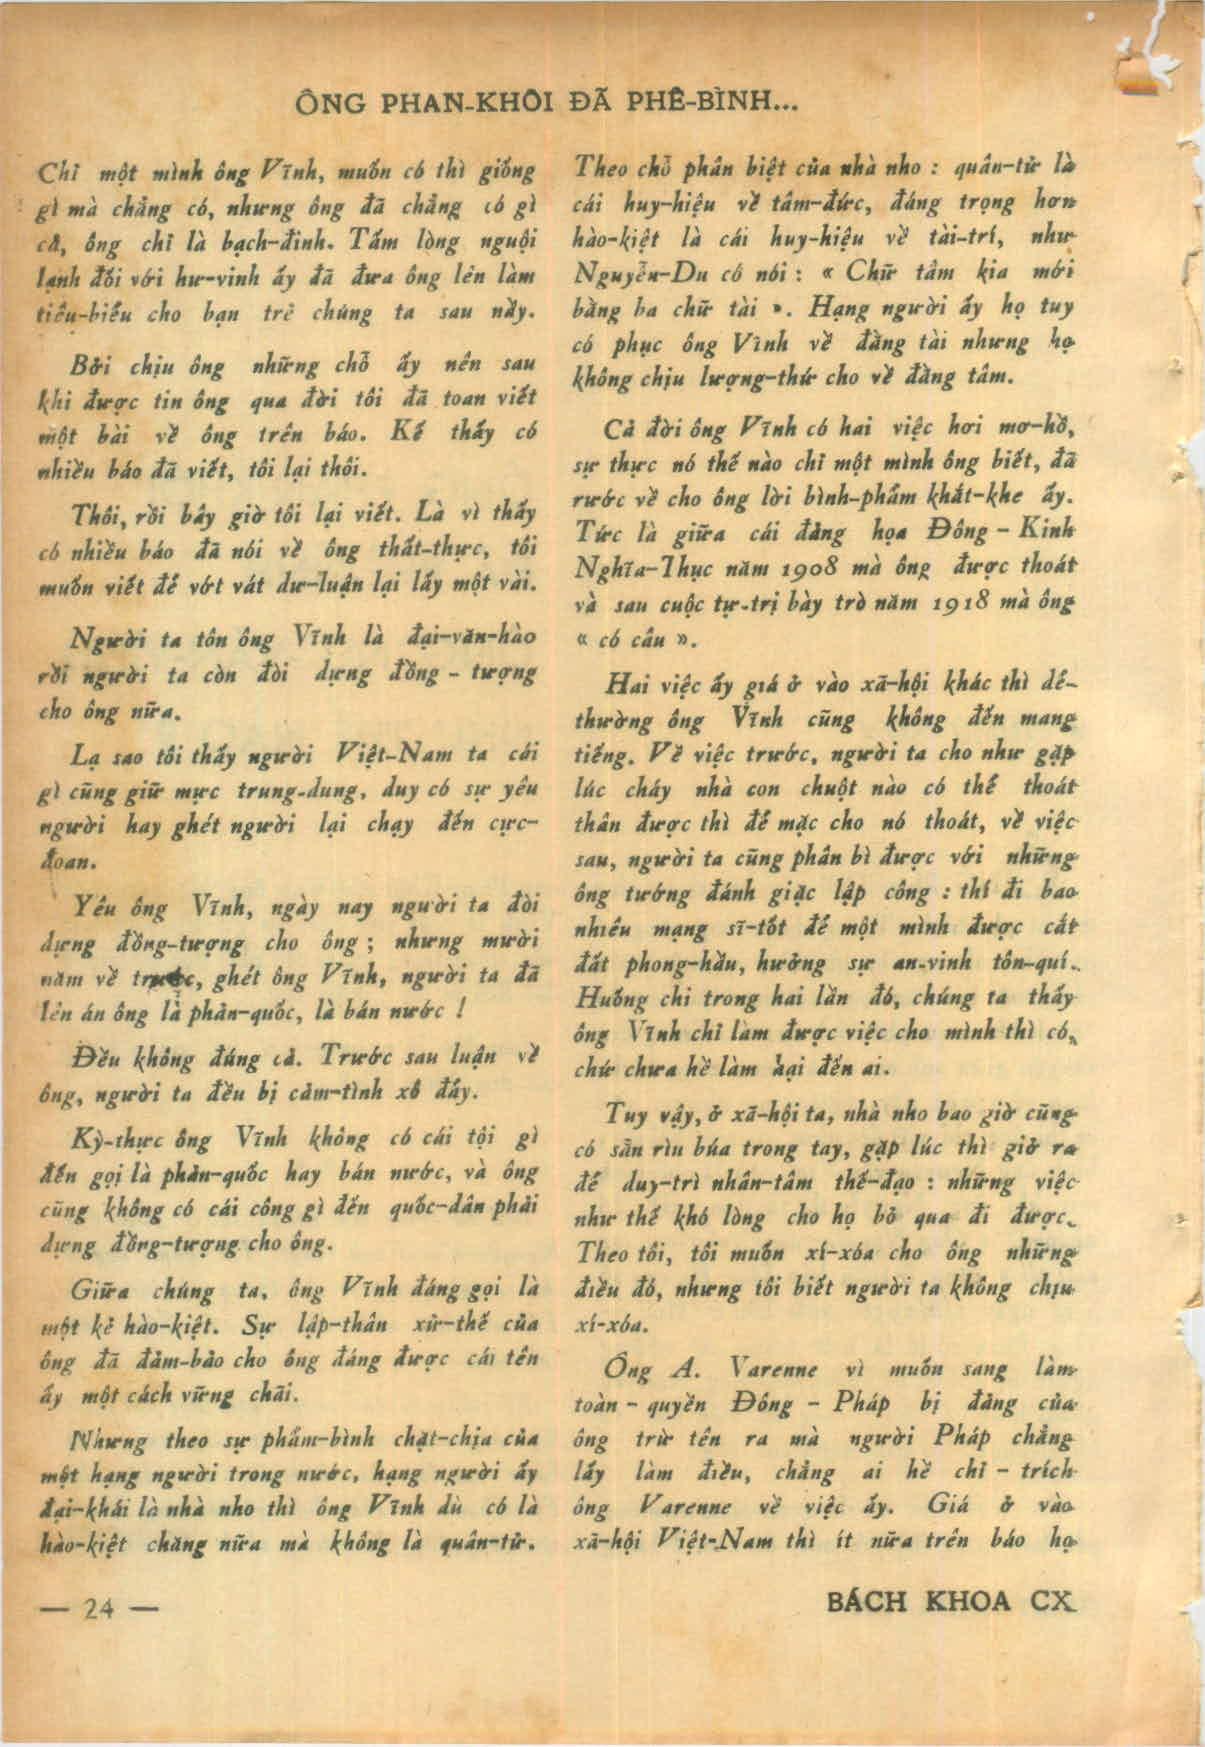 ÔNG PHAN-KHÔI ĐÃ PHÊ-BÌNH...
Chỉ một mình ông Vĩnh, muốn có thì giống
gì mà chẳng có, nhưng ông đã chẳng có gì
cả, ông chỉ là bạch-đinh. Tấm lòng nguội
lạnh đối với hư-vinh ấy đã đưa ông lên làm
tiêu-biểu cho bạn trẻ chúng ta sau nầy.
Bởi chịu ông những chỗ ấy nên sau
khi được tin ông qua đời tôi đã toan viết
một bài về ông trên báo. Kế thấy có
nhiều báo đã viết, tôi lại thôi.
Thôi, rồi bây giờ tôi lại viết. Là vì thấy
có nhiều báo đã nói về ông thất-thực, tôi
muốn viết để vớt vát dư-luận lại lấy một vài.
Người ta tôn ông Vĩnh là đại-văn-hào
rồi người ta còn đòi dựng đồng - tượng
cho ông nữa.
Lạ sao tôi thấy người Việt-Nam ta cái
gì cũng giữ mực trung-dung, duy có sự yêu
người hay ghét người lại chạy đến cực-
đoan.
Yêu ông Vĩnh, ngày nay người ta đòi
dựng đồng-tượng cho ông ; nhưng mười
năm về trước, ghét ông Vĩnh, người ta đã
lên án ông là phản-quốc, là bán nước !
Đều không đúng cả. Trước sau luận về
ông, người ta đều bị cảm-tình xô đẩy.
Kỳ-thực ông Vĩnh không có cái tội gì
đến gọi là phản-quốc hay bán nước, và ông
cũng không có cái công gì đến quốc-dân phải
dựng đồng-tượng cho ông.
Giữa chúng ta, ông Vĩnh đáng gọi là
một kẻ hào-kiệt. Sự lập-thân xử-thế của
ông đã đảm-bảo cho ông đáng được cái tên
ấy một cách vững chãi.
Nhưng theo sự phẩm-bình chặt-chịa của
một hạng người trong nước, hạng người ấy
đại-khái là nhà nho thì ông Vĩnh dù có là
hào-kiệt chăng nữa mà không là quân-tử.
Theo chỗ phân biệt của nhà nho : quân-tử là
cái huy-hiệu về tâm-đức, đáng trọng hơn
hào-kiệt là cái huy-hiệu về tài-trí, như
Nguyễn-Du có nói : « Chữ tâm kia mới
bằng ba chữ tài ». Hạng người ấy họ tuy
có phục ông Vĩnh về đằng tài nhưng họ
không chịu lượng-thứ cho về đằng tâm.
Cả đời ông Vĩnh có hai việc hơi mơ-hồ,
sự thực nó thế nào chỉ một mình ông biết, đã
rước về cho ông lời bình-phẩm khắt-khe ấy.
Tức là giữa cái đảng họa Đông - Kinh
Nghĩa-Thục năm 1908 mà ông được thoát
và sau cuộc tự-trị bày trò năm 1918 mà ông
« có câu ».
Hai việc ấy giá ở vào xã-hội khác thì dễ-
thường ông Vĩnh cũng không đến mang
tiếng. Về việc trước, người ta cho như gặp
lúc cháy nhà con chuột nào có thể thoát
thân được thì để mặc cho nó thoát, về việc
sau, người ta cũng phân bì được với những
ông tướng đánh giặc lập công : thí đi bao
nhiêu mạng sĩ-tốt để một mình được cắt
đất phong-hầu, hưởng sự an-vinh tôn-quí.
Huống chi trong hai lần đó, chúng ta thấy
ông Vĩnh chỉ làm được việc cho mình thì có,
chứ chưa hề làm hại đến ai.
Tuy vậy, ở xã-hội ta, nhà nho bao giờ cũng
có sẵn rìu búa trong tay, gặp lúc thì giở ra
để duy-trì nhân-tâm thế-đạo : những việc
như thế khó lòng cho họ bỏ qua đi được.
Theo tôi, tôi muốn xí-xóa cho ông những
điều đó, nhưng tôi biết người ta không chịu
xí-xóa.
Ông A. Varenne vì muốn sang làm
toàn - quyền Đông - Pháp bị đảng của
ông trừ tên ra mà người Pháp chẳng
lấy làm điều, chẳng ai hề chỉ - trích
ông Varenne về việc ấy. Giá ở vào
xã-hội Việt-Nam thì ít nữa trên báo họ
— 24 —
BÁCH KHOA CX